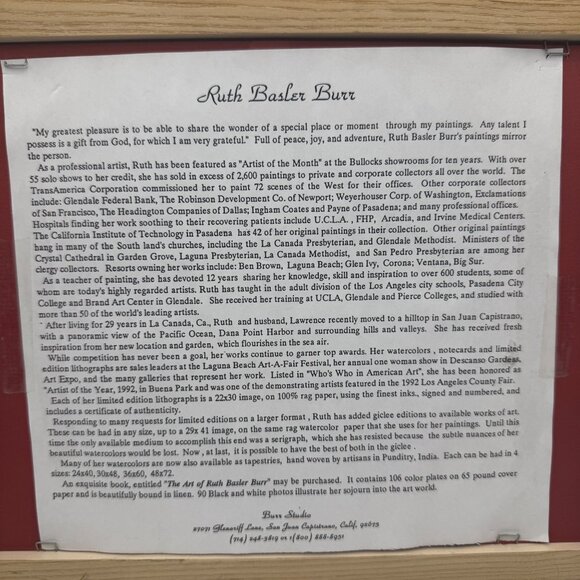 Ruth Basler Burr
"My greatest pleasure is to be able to share the wonder of a special place or moment through my paintings. Any talent I
possess is a gift from God, for which I am very grateful." Full of peace, joy, and adventure, Ruth Basler Burr's paintings mirror
the person.
As a professional artist, Ruth has been featured as "Artist of the Month" at the Bullocks showrooms for ten years. With over
55 solo shows to her credit, she has sold in excess of 2,600 paintings to private and corporate collectors all over the world. The
TransAmerica Corporation commissioned her to paint 72 scenes of the West for their offices. Other corporate collectors
include: Glendale Federal Bank, The Robinson Development Co. of Newport; Weyerhouser Corp. of Washington, Exclamations
of San Francisco, The Headington Companies of Dallas; Ingham Coates and Payne of Pasadena; and many professional offices.
Hospitals finding her work soothing to their recovering patients include U.C.L.A. , FHP, Arcadia, and Irvine Medical Centers.
The California Institute of Technology in Pasadena has 42 of her original paintings in their collection. Other original paintings
hang in many of the South land's churches, including the La Canada Presbyterian, and Glendale Methodist. Ministers of the
Crystal Cathedral in Garden Grove, Laguna Presbyterian, La Canada Methodist, and San Pedro Presbyterian are among her
clergy collectors. Resorts owning her works include: Ben Brown, Laguna Beach; Glen Ivy, Corona; Ventana, Big Sur.
As a teacher of painting, she has devoted 12 years sharing her knowledge, skill and inspiration to over 600 students, some of
whom are today's highly regarded artists. Ruth has taught in the adult division of the Los Angeles city schools, Pasadena City
College and Brand Art Center in Glendale. She received her training at UCLA, Glendale and Pierce Colleges, and studied with
more than 50 of the world's leading artists.
After living for 29 years in La Canada, Ca., Ruth and husband, Lawrence recently moved to a hilltop in San Juan Capistrano,
with a panoramic view of the Pacific Ocean, Dana Point Harbor and surrounding hills and valleys. She has received fresh
inspiration from her new location and garden, which flourishes in the sea air.
While competition has never been a goal, her works continue to garner top awards. Her watercolors , notecards and limited
edition lithographs are sales leaders at the Laguna Beach Art-A-Fair Festival, her annual one woman show in Descanso Gardens,
Art Expo, and the many galleries that represent her work. Listed in "Who's Who in American Art", she has been honored as
"Artist of the Year, 1992, in Buena Park and was one of the demonstrating artists featured in the 1992 Los Angeles County Fair.
Each of her limited edition lithographs is a 22x30 image, on 100% rag paper, using the finest inks., signed and numbered, and
includes a certificate of authenticity.
Responding to many requests for limited editions on a larger format , Ruth has added giclee editions to available works of art.
These can be had in any size, up to a 29x 41 image, on the same rag watercolor paper that she uses for her paintings. Until this
time the only available medium to accomplish this end was a serigraph, which she has resisted because the subtle nuances of her
beautiful watercolors would be lost. Now , at last, it is possible to have the best of both in the giclee .
Many of her watercolors are now also available as tapestries, hand woven by artisans in Punditry, India. Each can be had in 4
sizes: 24x40, 30x48, 36x60, 48x72.
An exquisite book, entitled "The Art of Ruth Basler Burr" may be purchased. It contains 106 color plates on 65 pound cover
paper and is beautifully bound in linen. 90 Black and white photos illustrate her sojourn into the art world.
Burr Studio
27071 Glenariff Lane, San Juan Capistrano, Calif. 92675
(714) 248-3819 or 1(800) 888-8951